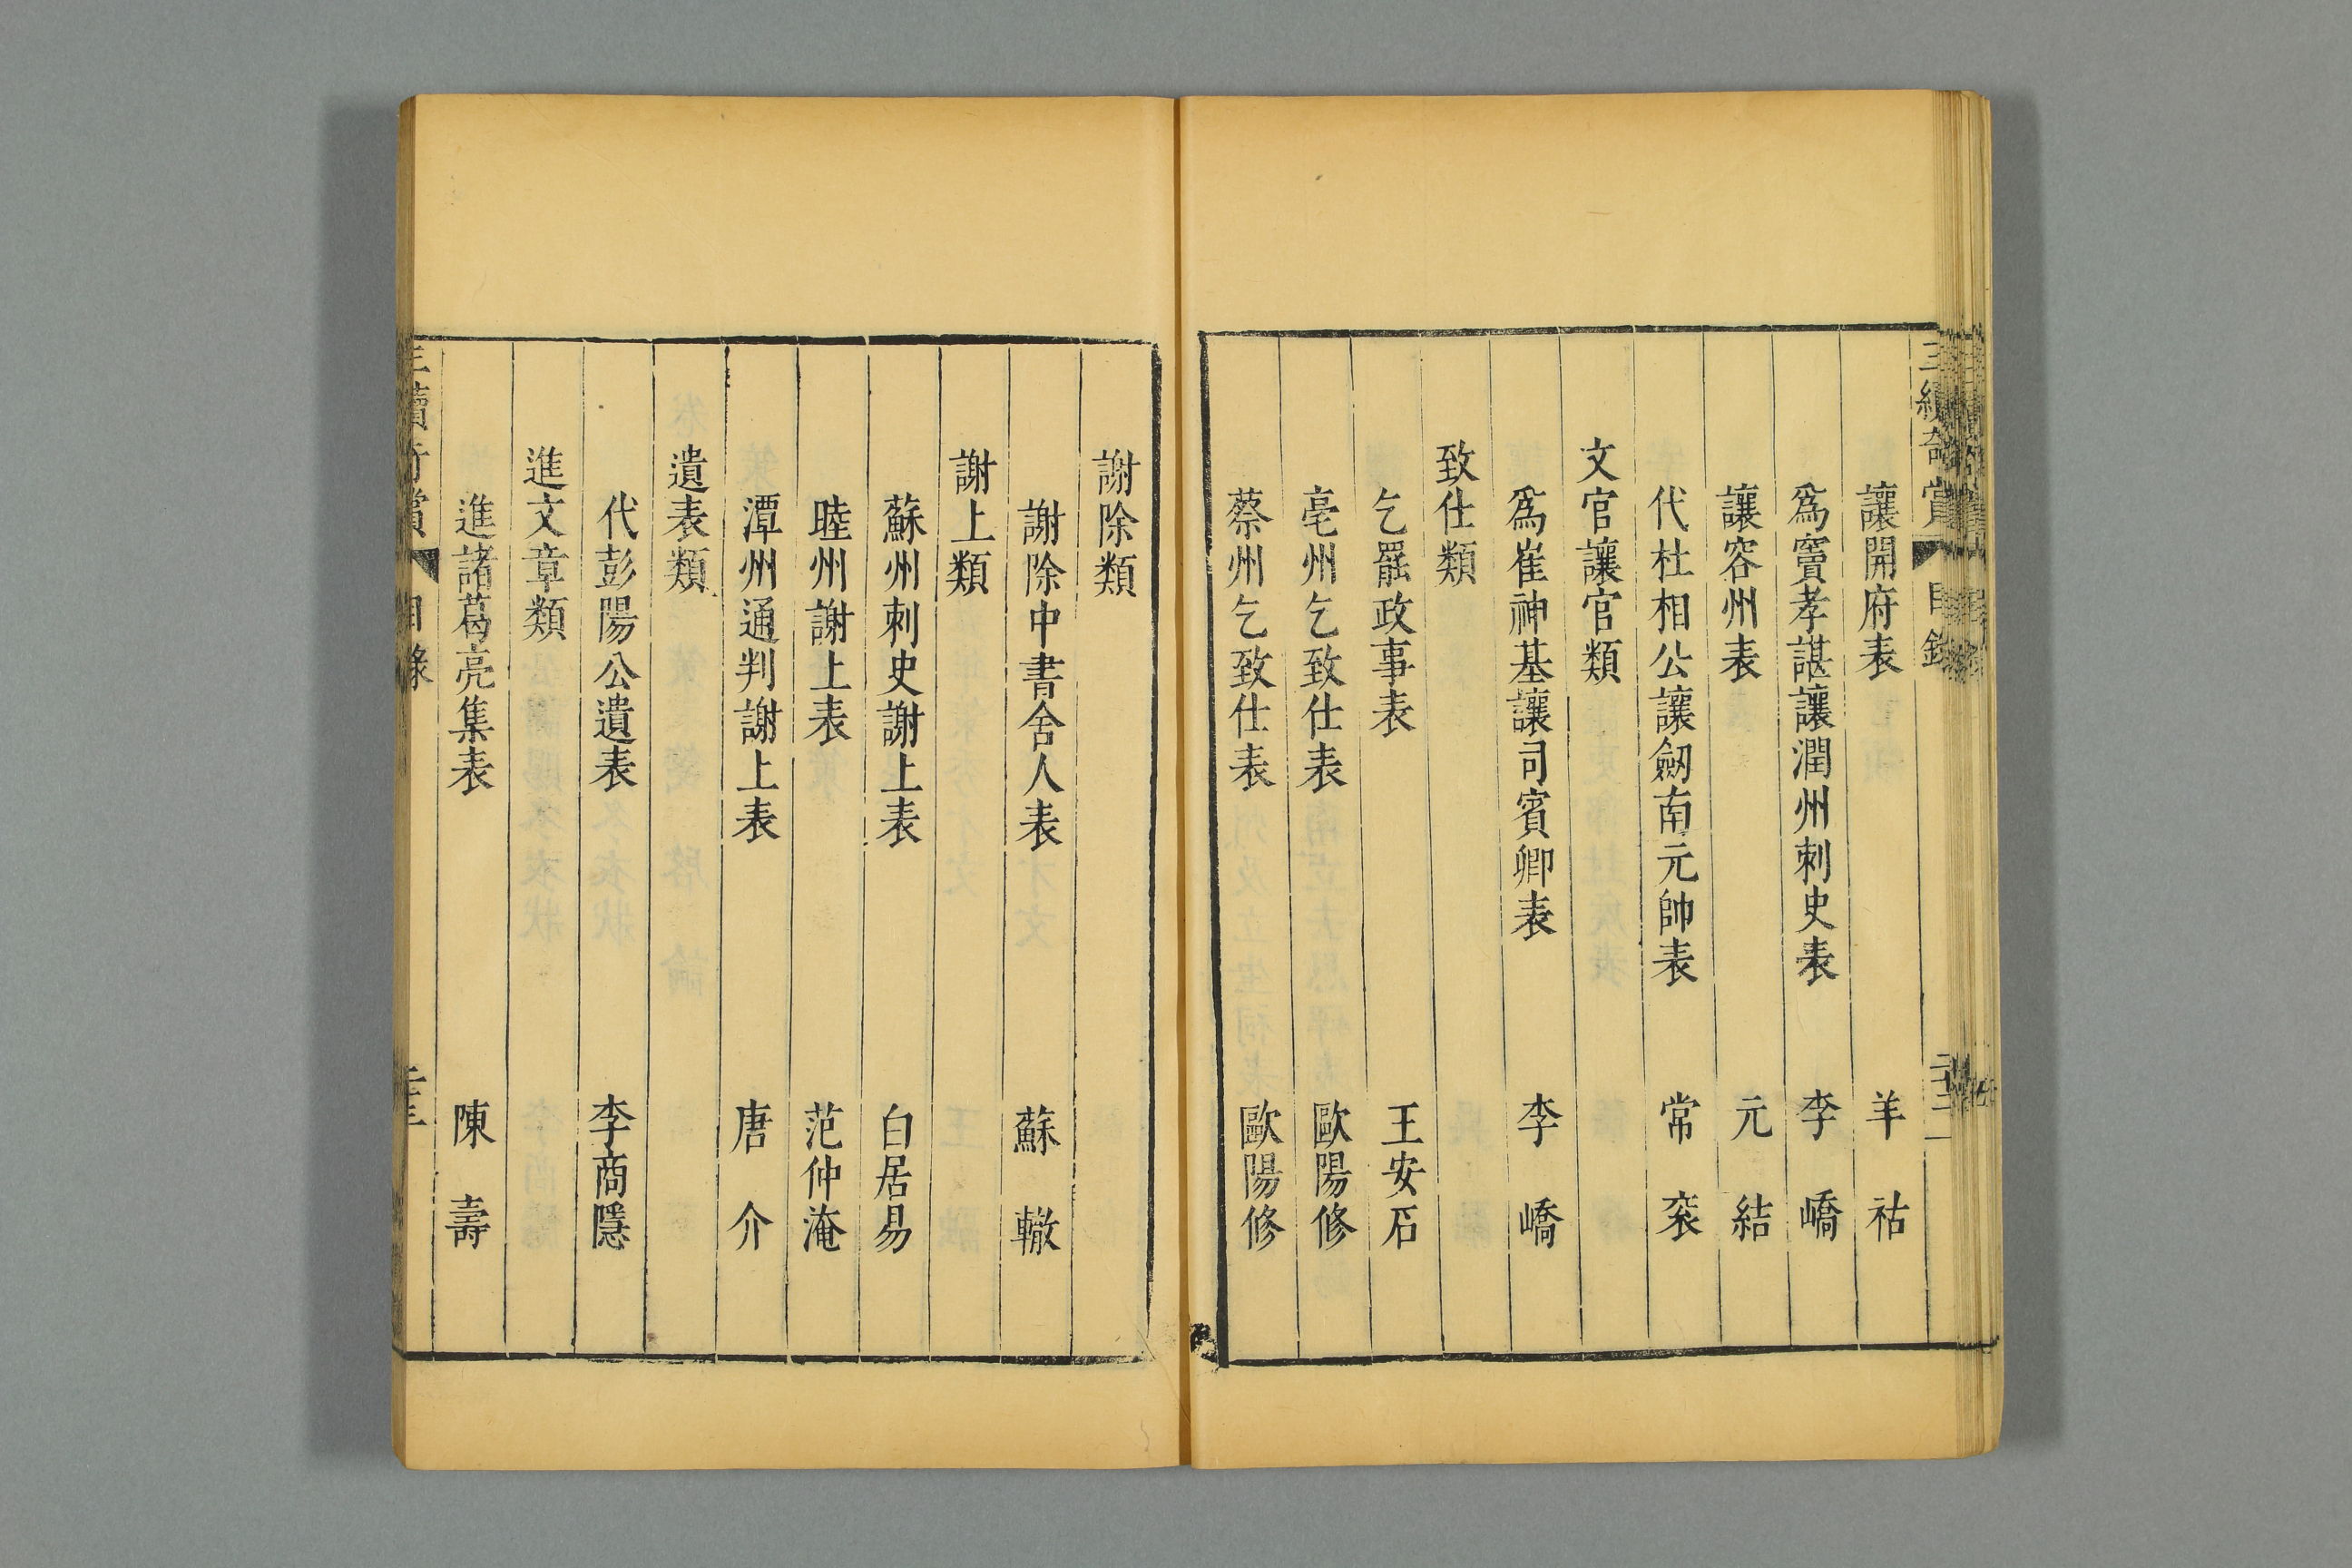 讓開府表 羊祜
爲竇孝諶讓潤州刺史表 李嶠
讓容州表 元結
代杜相公讓劒南元帥表 常衮
文官讓官類
爲崔神基讓司賓卿表 李嶠
致仕類
乞罷政事表 王安石
亳州乞致仕表 歐陽修
蔡州乞致仕表 歐陽修
謝除類
謝除中書舍人表 蘇轍
謝上類
蘇州刺史謝上表 白居易
睦州謝上表 范仲淹
潭州通判謝上表 唐介
遺表類
代彭陽公遺表 李商隱
進文章類
進諸葛亮集表 陳壽